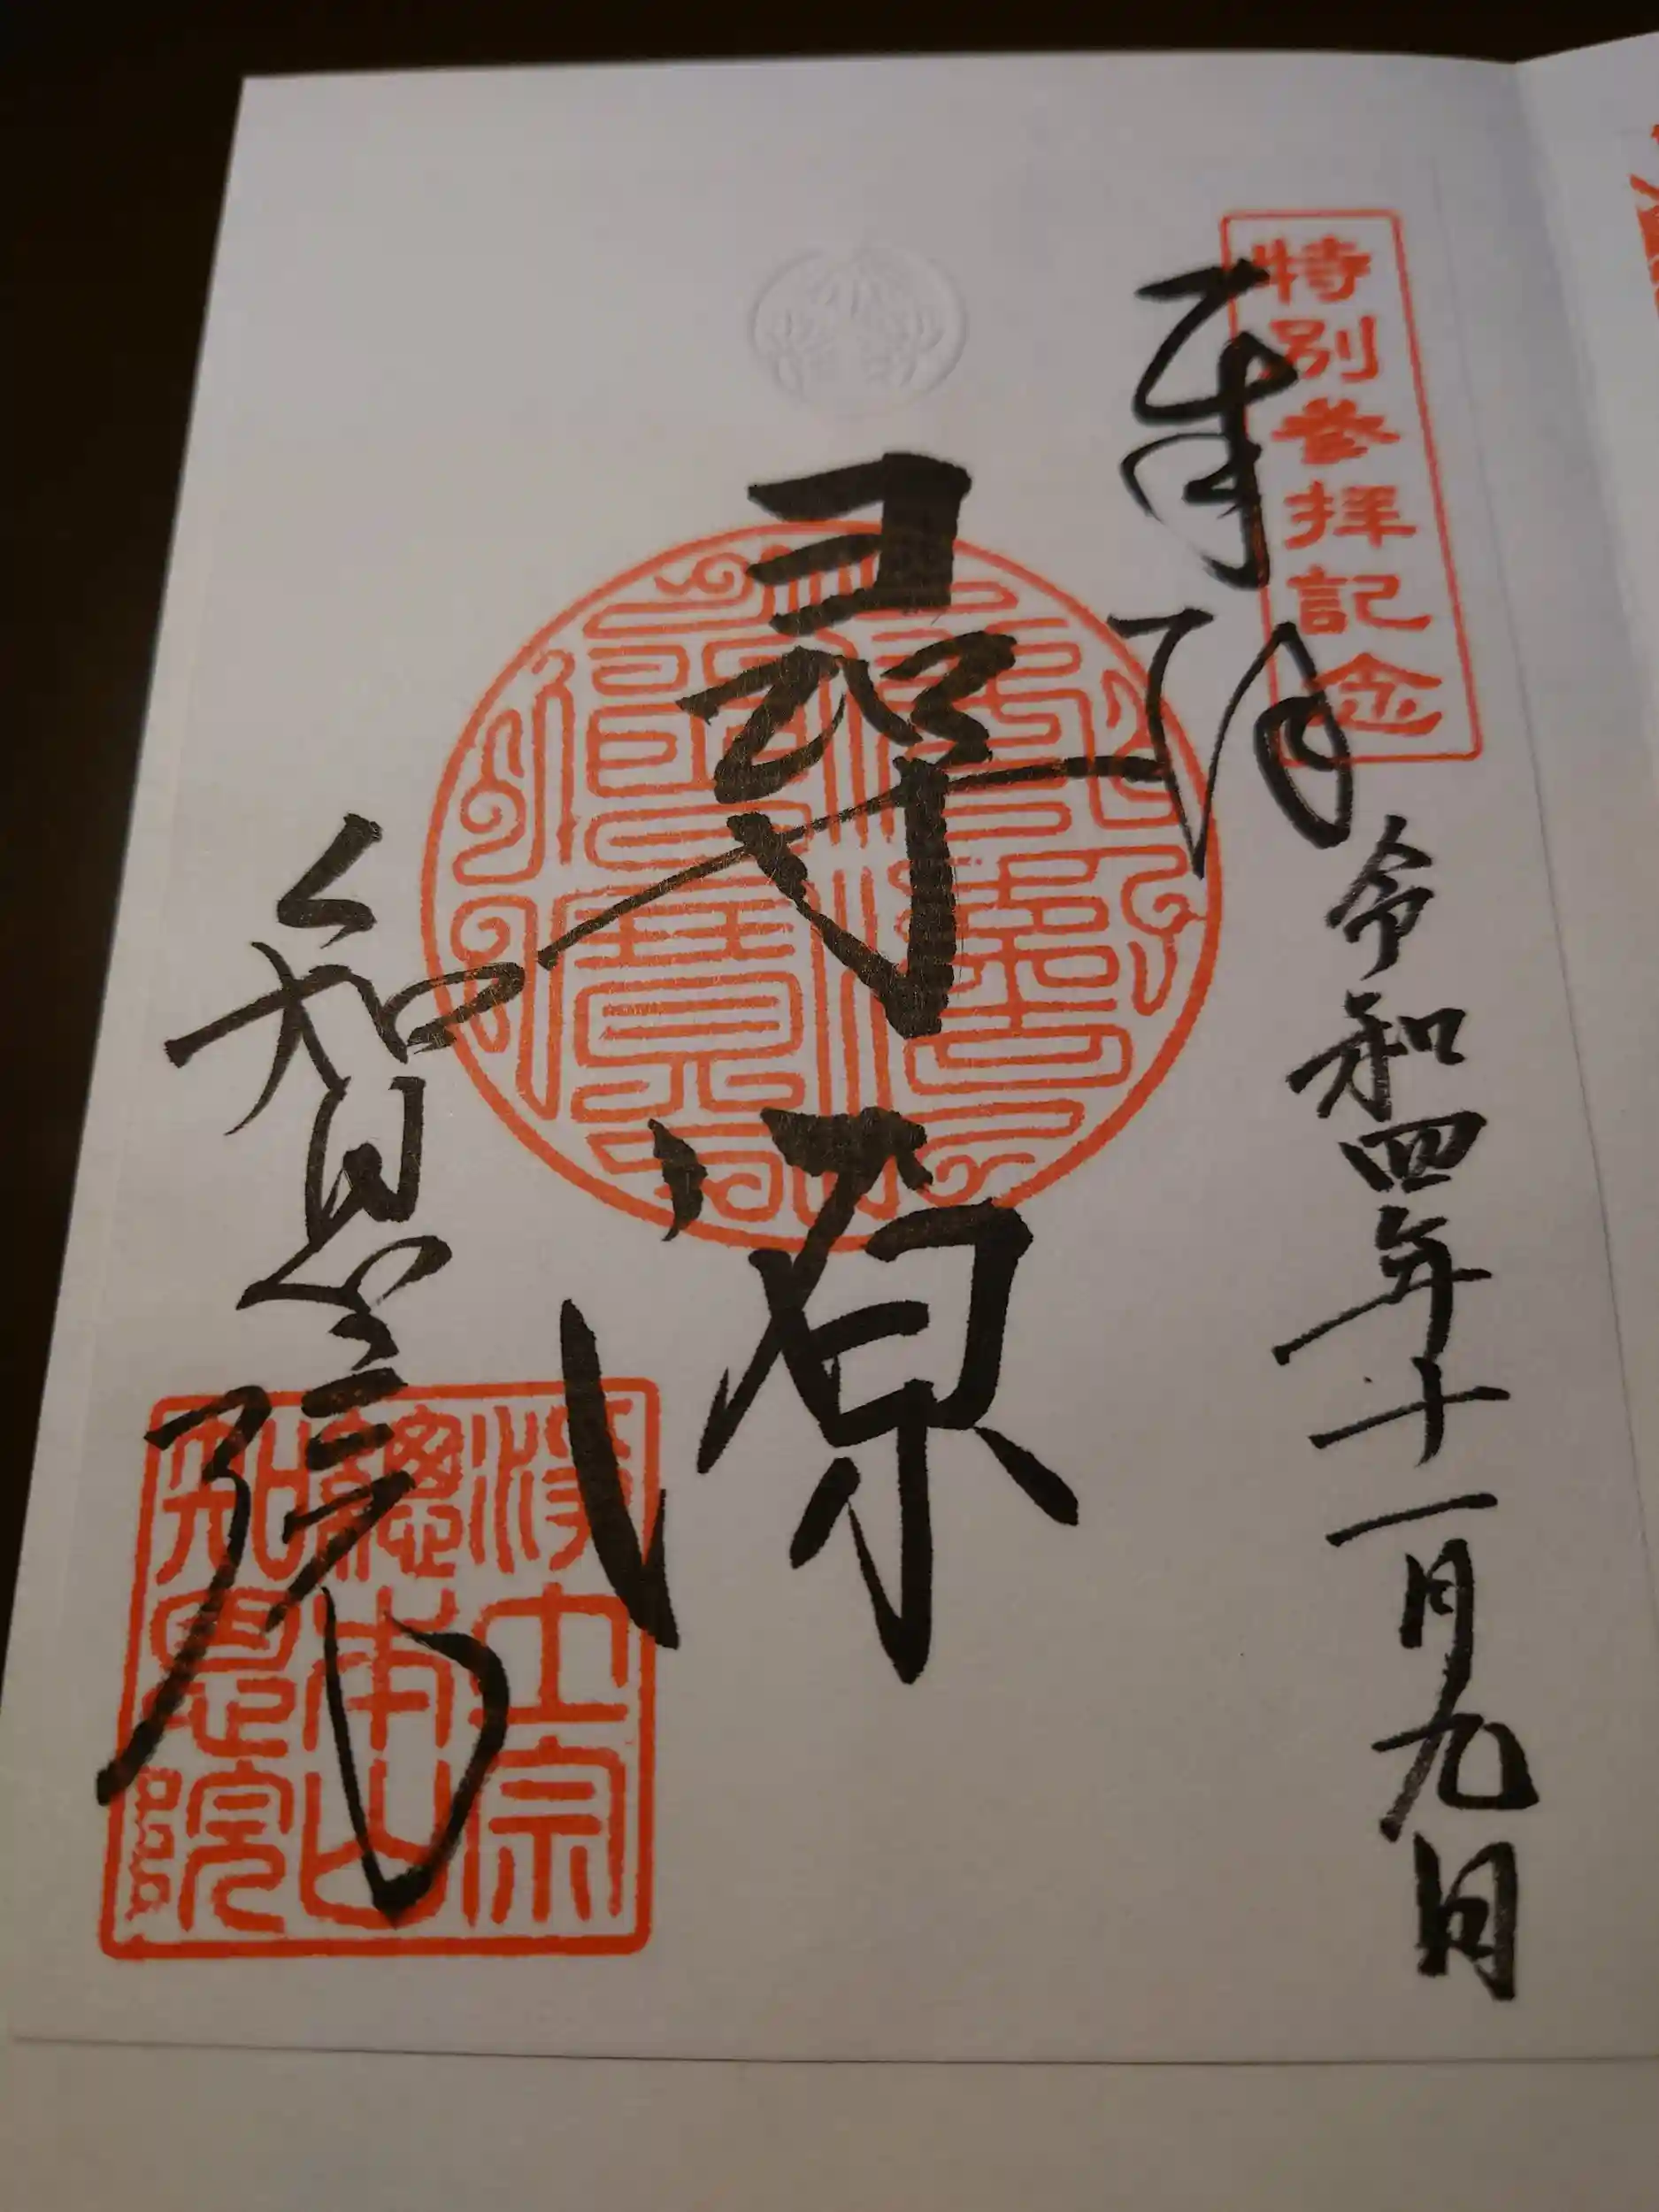 特別参拝記念
奉拝
令和四年十一月九日
尋源
知恩院
浄土宗
總本山
知恩院